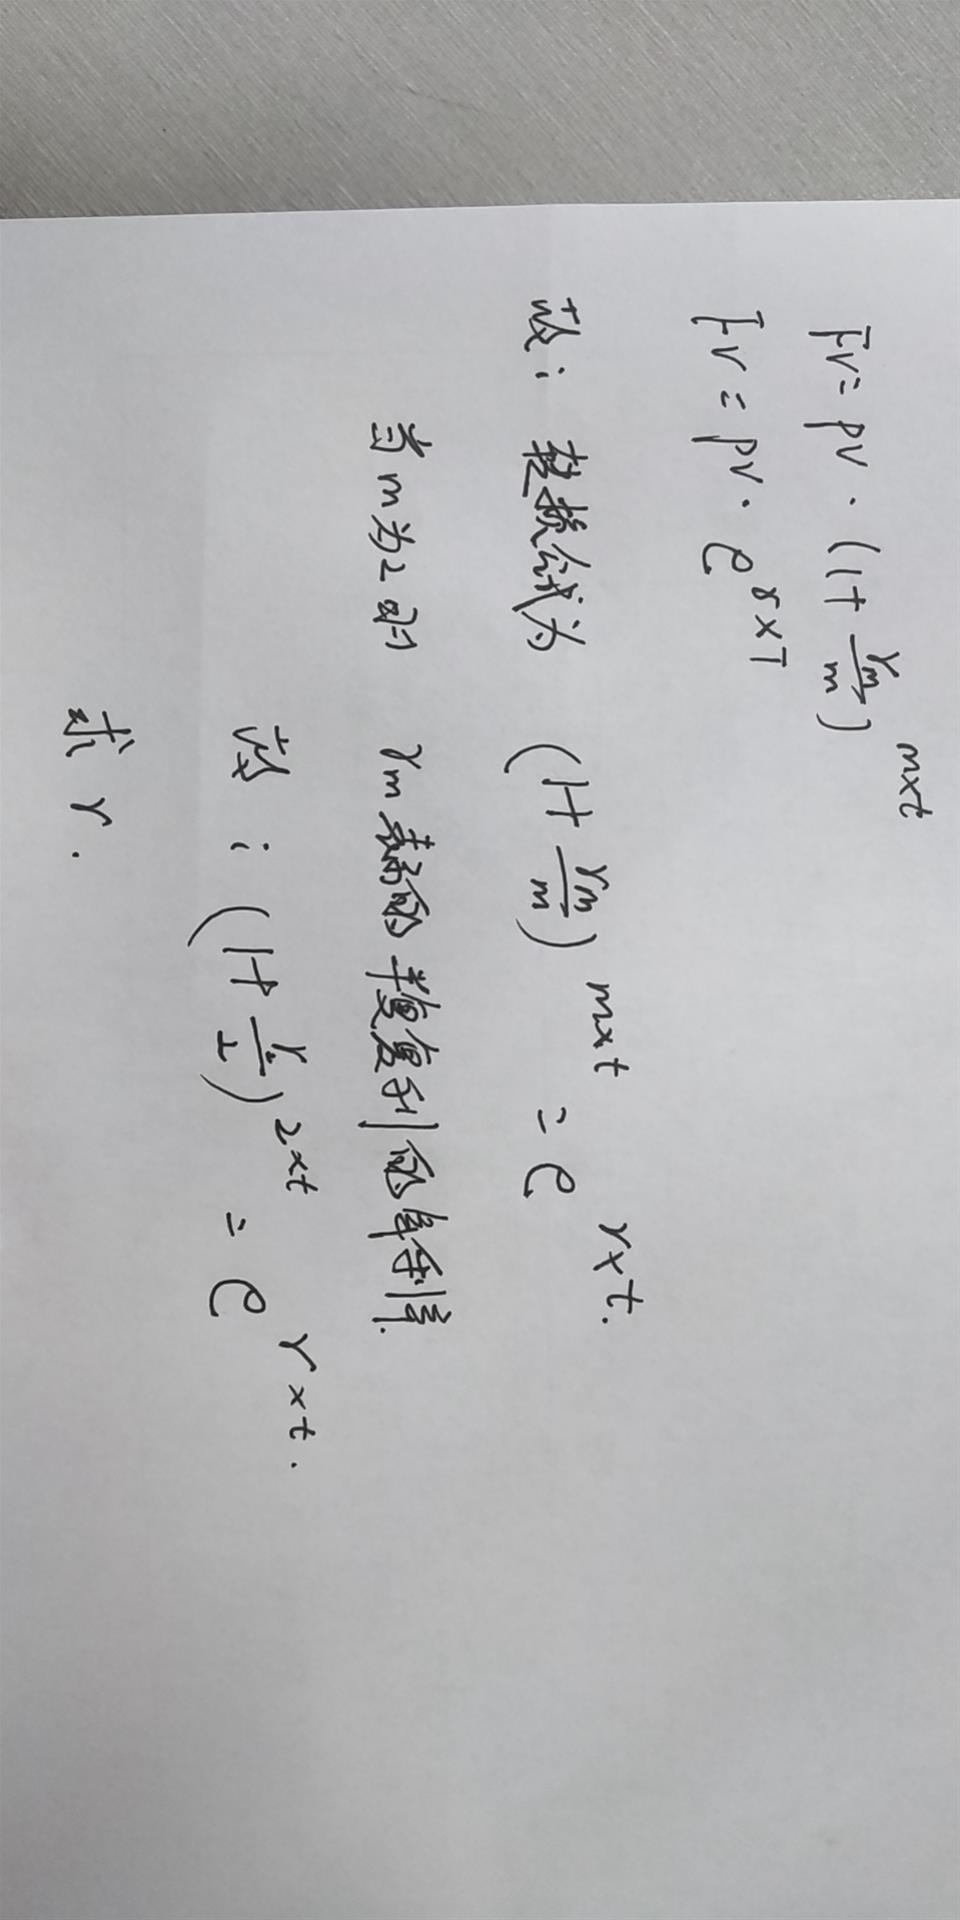 FV = PV · (1+ rm/m)^m×t
FV = PV · e^r×T
故: 转换公式为 (1+ rm/m)^m×t = e^r×t.
当m为2时 rm表示的半年复利的年利率.
故: (1+ r2/2)^2×t = e^r×t.
求r.